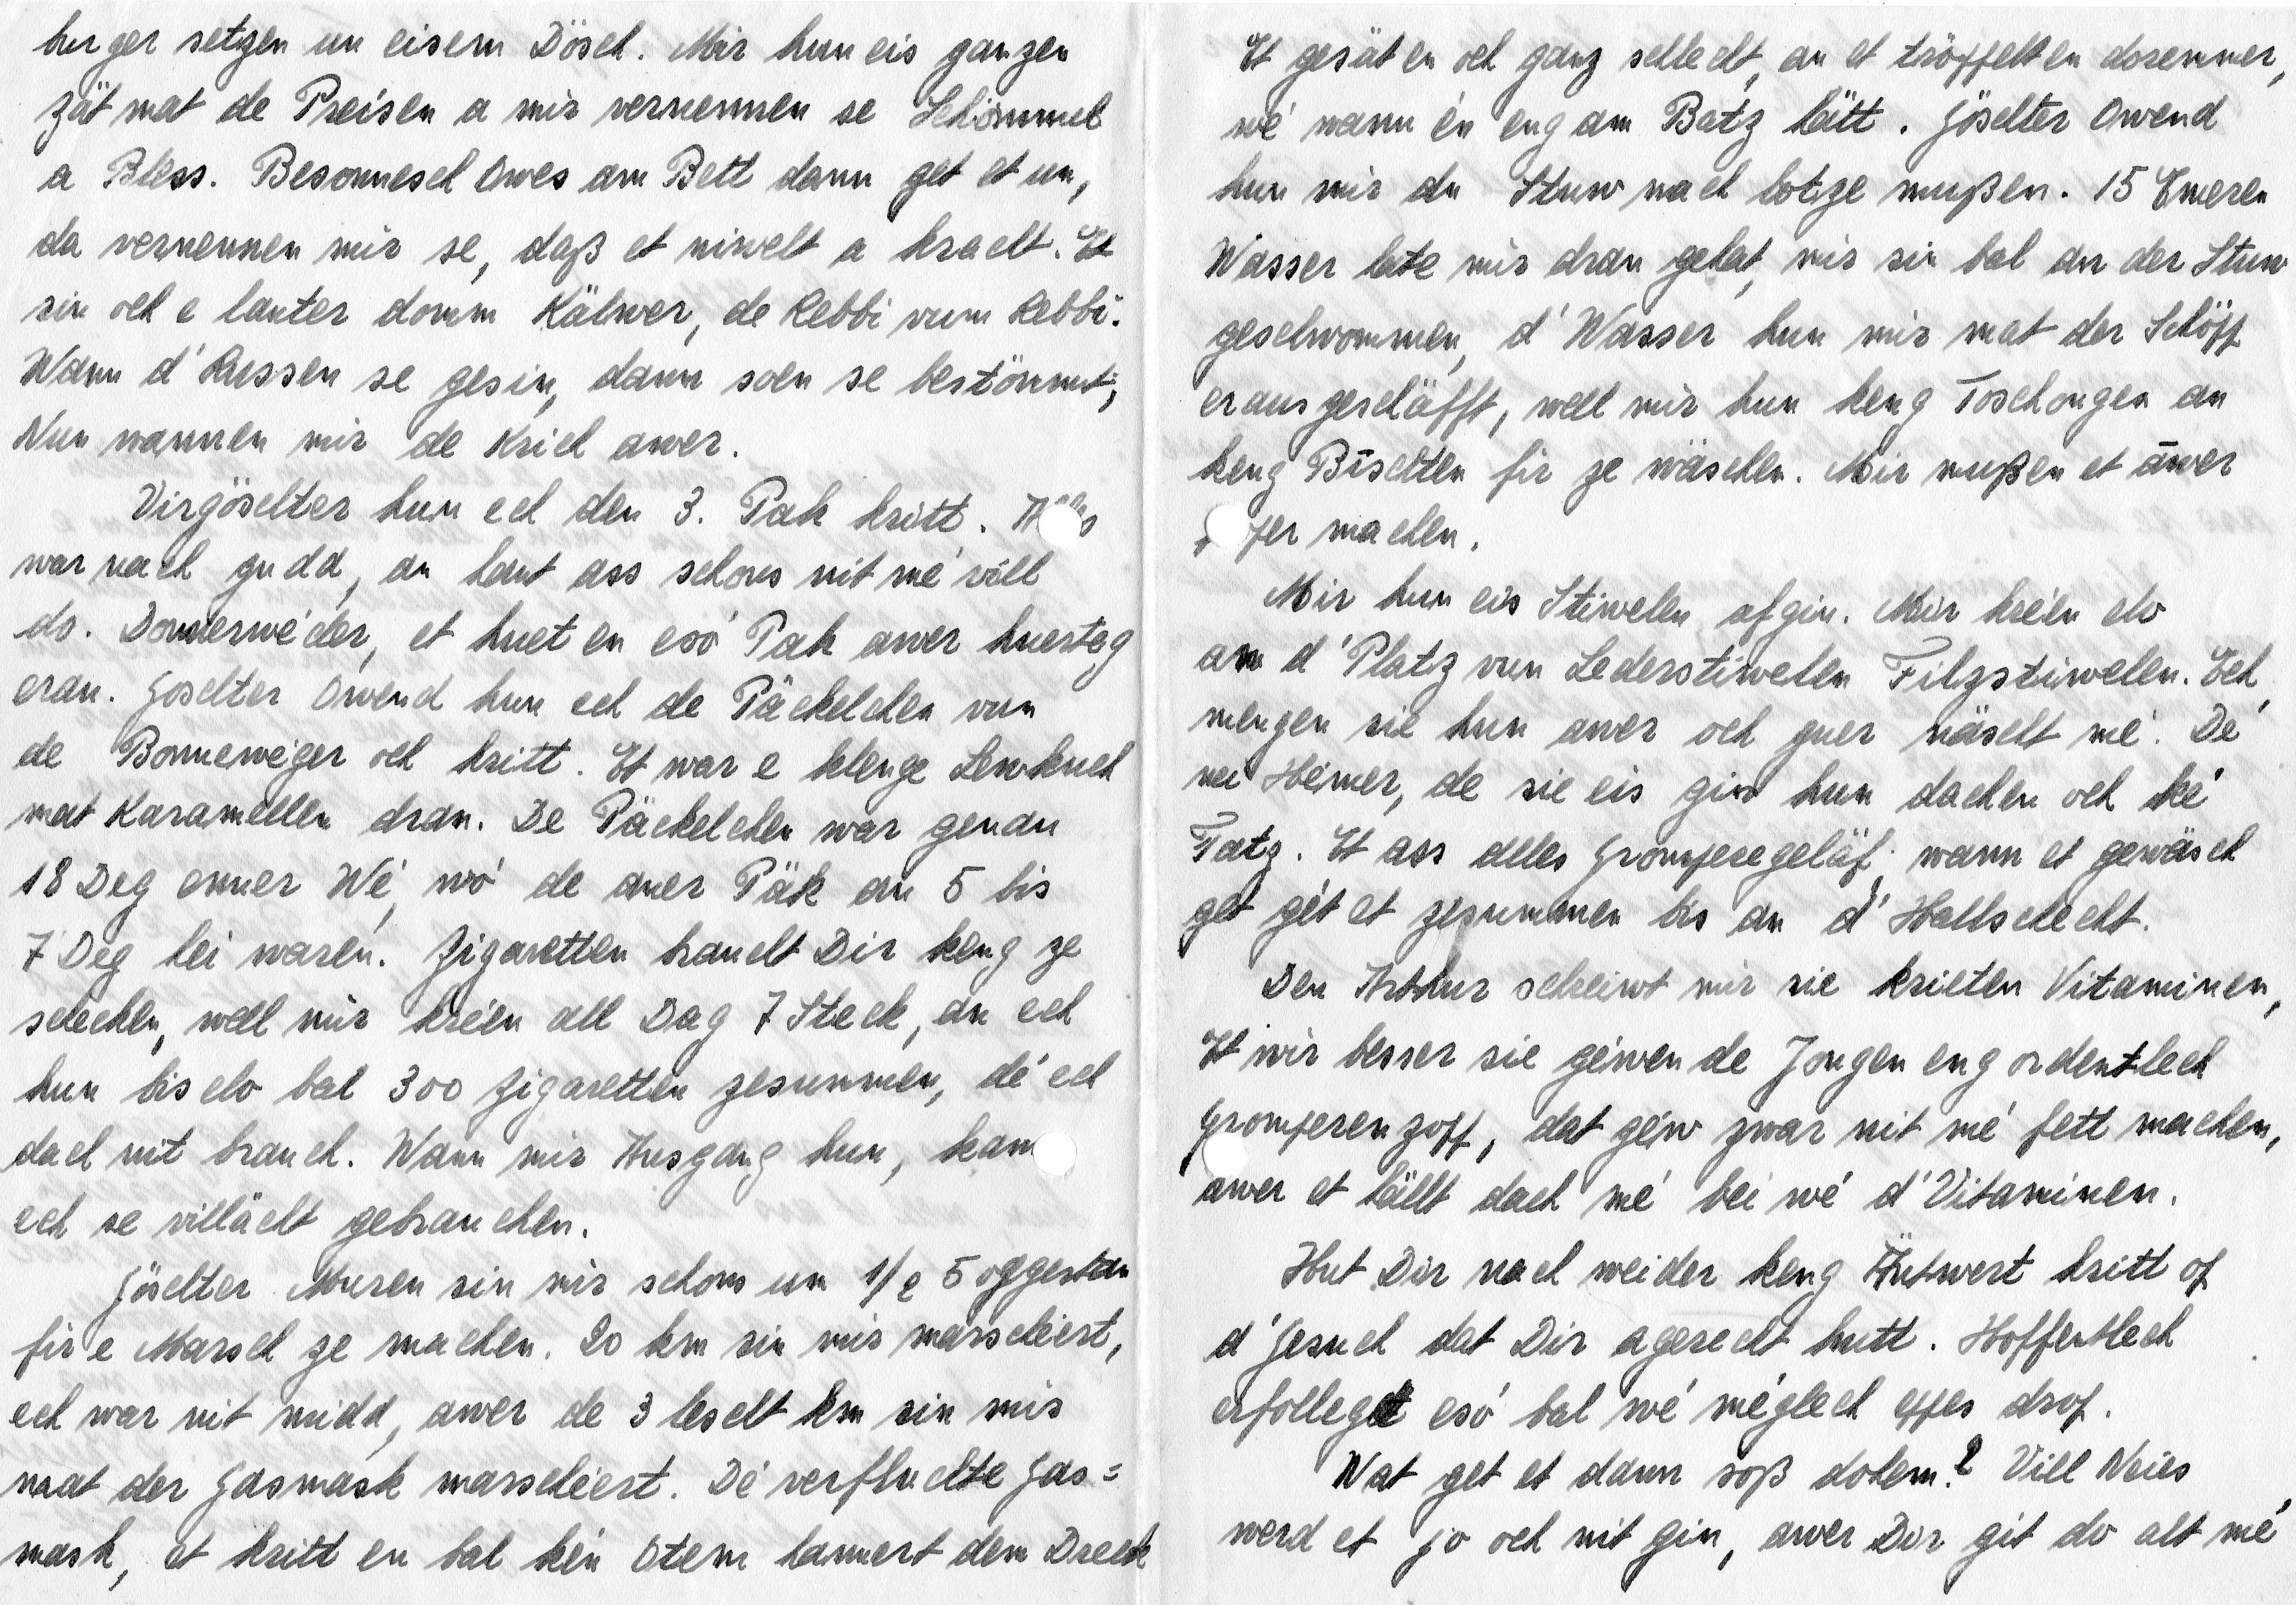 burger setzen un eisem Dösch. Mir hun eis ganzen
Zät mat de Preisen a mir vernennen se Schömmel
a Bless. Besonnesch Owes am Bett dann get et un,
da vernennen mir se, daß et niwelt a kracht. Et
sin och e lauter domm Kälwer, de Rebbi vum Rebbi.
Wann d'Russen se gesin, dann soen se bestömmt,
Nun wannen mir de Krich awer.
Virgöschter hun ech den 3. Pak kritt.
war nach gudd, an haut ass schons nit mé vill
do. Donnerwéder, et huet en esó Pak awer huerteg
eran. Göschter Owend hun ech de Päckelchen vun
de Bonneweger och kritt. Et war e klenge Lewkuch
mat Karamellen dran. De Päckelchen war genau
18 Deg enner Wé, wó de aner Päk an 5 bis
7 Deg hei waren. Zigaretten braucht Dir keng ze
schecken, well mir kréien all Dag 7 Steck, an ech
hun bis elo bal 300 Zigaretten zesummen, dé ech
dach nit brauch. Wann mir Ausgang hun, kann
ech se villächt gebrauchen.
Göschter Muren sin mir schons um 1/2 5 opgestan
fir e Marsch ze machen. 20 km sin mir marschéiert,
ech war nit midd, awer de 3 lescht km sin mir
mat der Gasmask marschéiert. Dé verfluchte Gas=
mask, et kritt en bal kén Otem hannert dem Dreck
Et gesäit en och ganz schlecht, an et tröppelt en dorenner,
wé wann én eng am Batz lätt. Göschter Owend
hun mir du Stuw nach botze mußen. 15 Emeren
Wasser hate mir dran gehat, mir sin bal an der Stuw
geschwommen, d'Wasser hun mir mat der Schöpp
erausgeschäfft, well mir hun keng Toschongen an
keng Bischten fir ze wäschen. Mir mußen et awer
machen.
Mir hun eis Stiwelen ofgin. Mir kréien elo
am d'Platz vun Lederstiwelen Filzstiwelen. Ech
mengen sie hun awer och guer näischt mé. Dé
nei Hémer, de sie eis gin hun dachen och ké
Fatz. Et ass alles Gromperegeläf, wann et gewäsch
get gét et zesummen bis an d'Hallschecht.
Den Arthur schreiwt mir sie krieten Vitaminen,
Et wir besser sie géiwen de Jongen eng ordentlech
Gromperenzopp, dat géiw zwar nit mé fett machen,
awer et hällt dach mé bei wé d'Vitaminen.
Hut Dir nach weider keng Äntwert kritt op
d'Gesuch dat Dir agerecht hutt. Hoffentlech
erfollegt esó bal wé méglech eppes drop.
Wat get et dann soß dohem? Vill Neies
werd et jo och nit gin, awer Dir git do alt mé